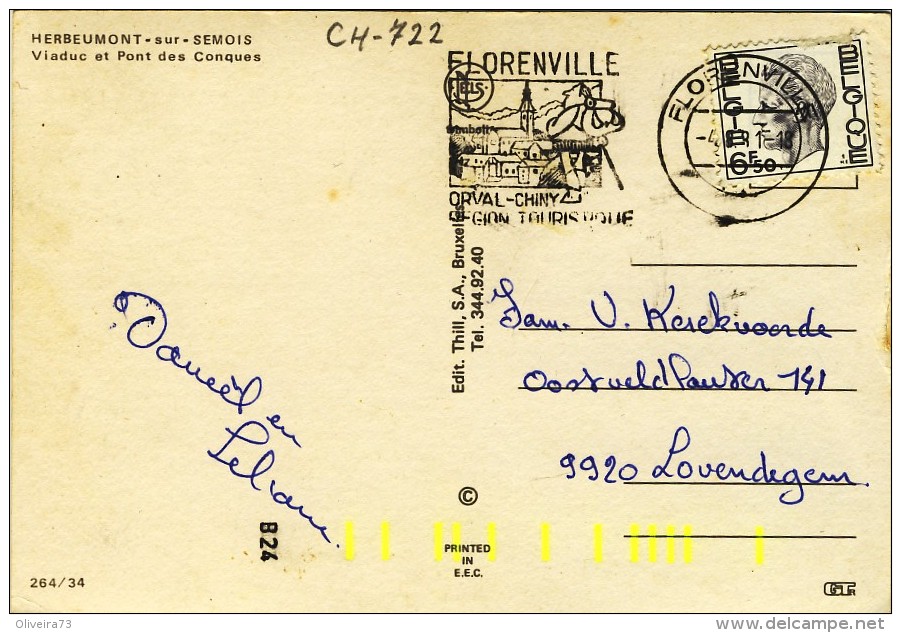 HERBEUMONT-sur-SEMOIS
Viaduc et Pont des Conques
CH-722
FLORENVILLE
ORVAL-CHINY
REGION TOURISTIQUE
FLORENVILLE
BELGIE
BELGIQUE
6F50
Edit. Thill, S.A., Bruxelles
Tel. 344.92.40
Fam. V. Kerckvoorde
141
9920 Lovendegem
Daniël en
Liliane.
©
PRINTED
IN
E.E.C.
B24
264/34
GTR
Oliveira73
www.delcampe.net